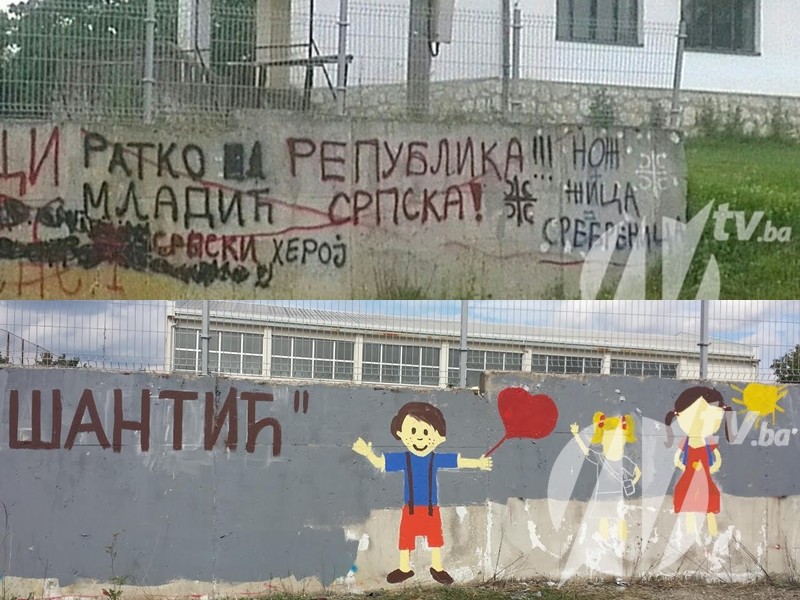 ЦИ РАТКО РЕПУБЛИКА!!! НОЖ
МЛАДИЋ СРПСКА! ЖИЦА
СРПСКИ ХЕРОЈ СРЕБРЕНИЦА
tv.ba
ШАНТИЋ"
tv.ba